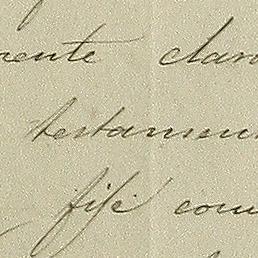 mente clar
testamen
fisé com